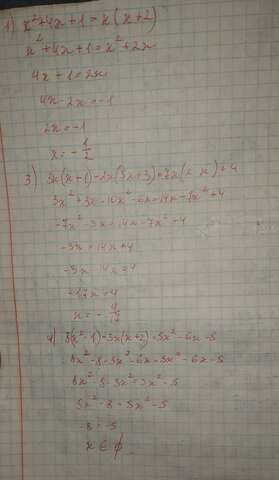 1) x²+4x+1=x(x+2)
x²+4x+1=x²+2x
4x+1=2x
4x-2x=-1
2x=-1
x=-1/2
3) 3x(x+1)-2x(5x+3)=7x(2-x)+4
3x²+3x-10x²-6x=14x-7x²+4
-7x²-3x=14x-7x²+4
-3x=14x+4
-3x-14x=4
-17x=4
x=-4/17
4) 8(x²-1)-3x(x+2)=5x²-6x-5
8x²-8-3x²-6x=5x²-6x-5
8x²-8-3x²=5x²-5
5x²-8=5x²-5
-8=-5
x∈∅